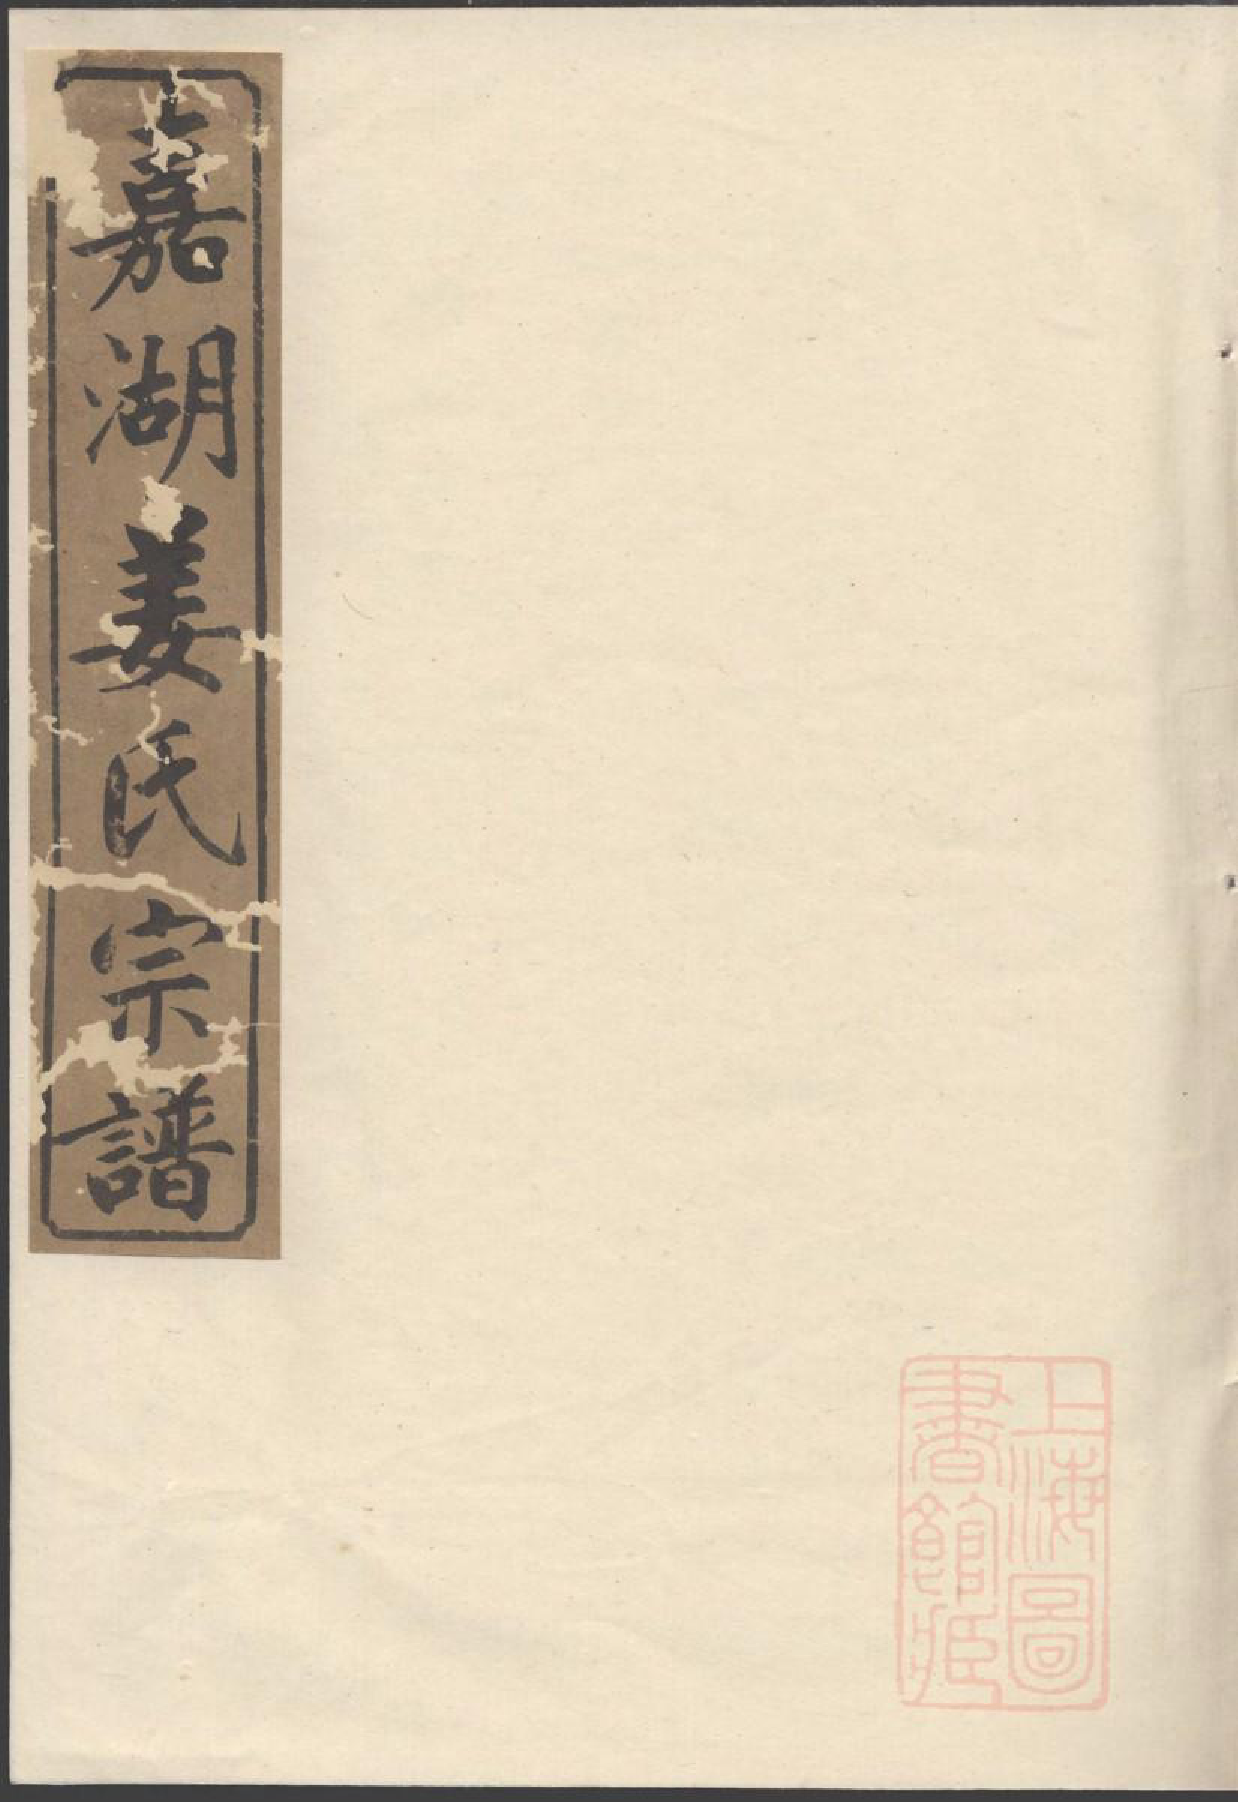 嘉湖姜氏宗譜
上海圖
書館藏